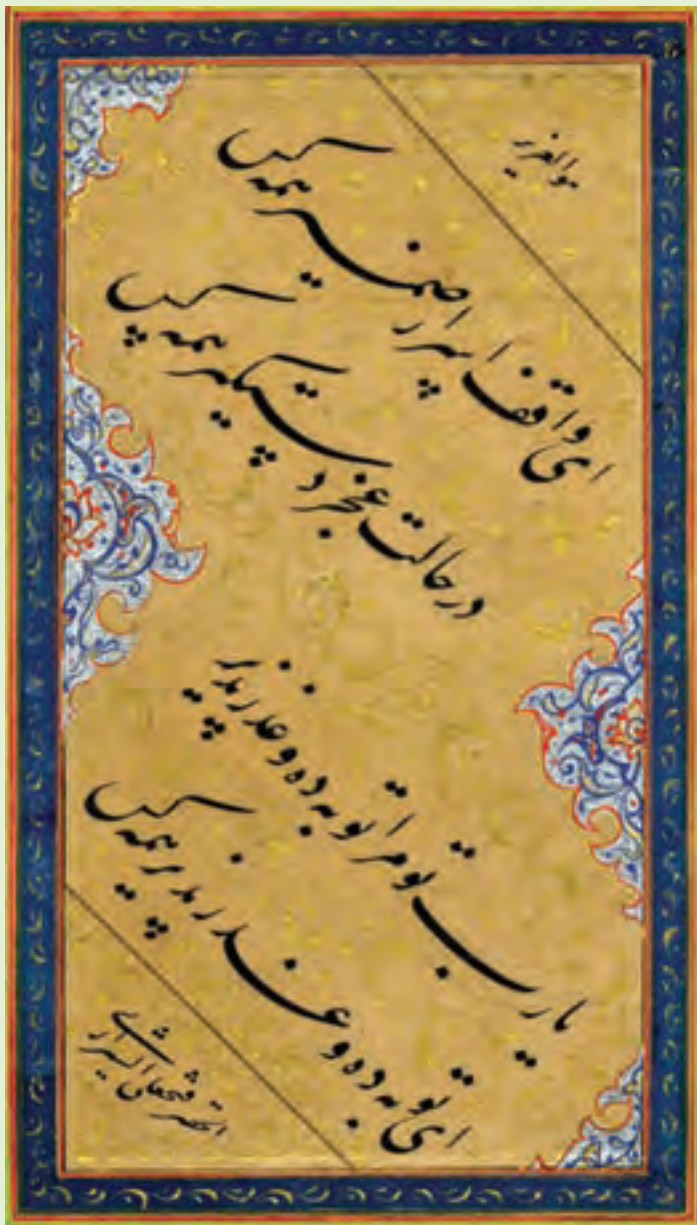 هوالعزیز
ای واقف اسرار ضمیر همه کس
در حالت عجز دستگیر همه کس
یارب تو مرا توبه ده و عذر پذیر
ای توبه ده و عذر پذیر همه کس
فتحعلی الشیرازی